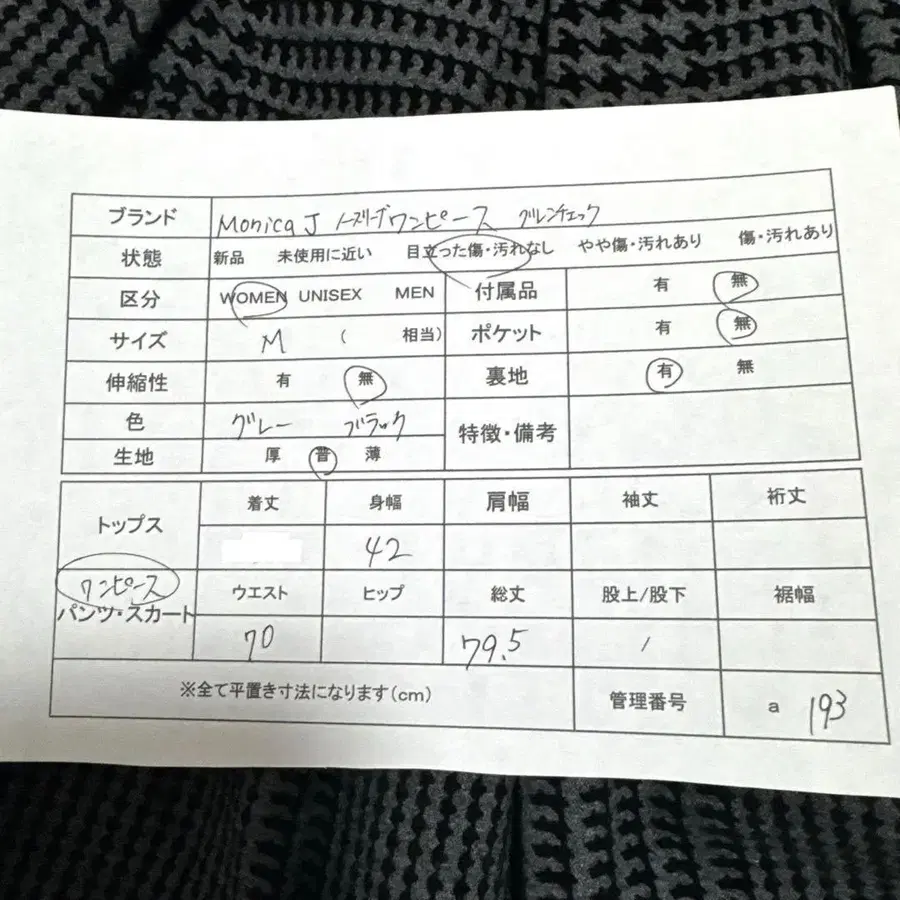 ブランド Monica J ノースリーブワンピース グレンチェック
状態 新品 未使用に近い 目立った傷・汚れなし やや傷・汚れあり 傷・汚れあり
区分 WOMEN UNISEX MEN 付属品 有 無
サイズ M ( 相当) ポケット 有 無
伸縮性 有 無 裏地 有 無
色 グレー ブラック 特徴・備考
生地 厚 普 薄
トップス 着丈 身幅 肩幅 袖丈 裄丈
42
ワンピース ウエスト ヒップ 総丈 股上/股下 裾幅
パンツ・スカート
70 79.5 /
※全て平置き寸法になります(cm) 管理番号 a 193